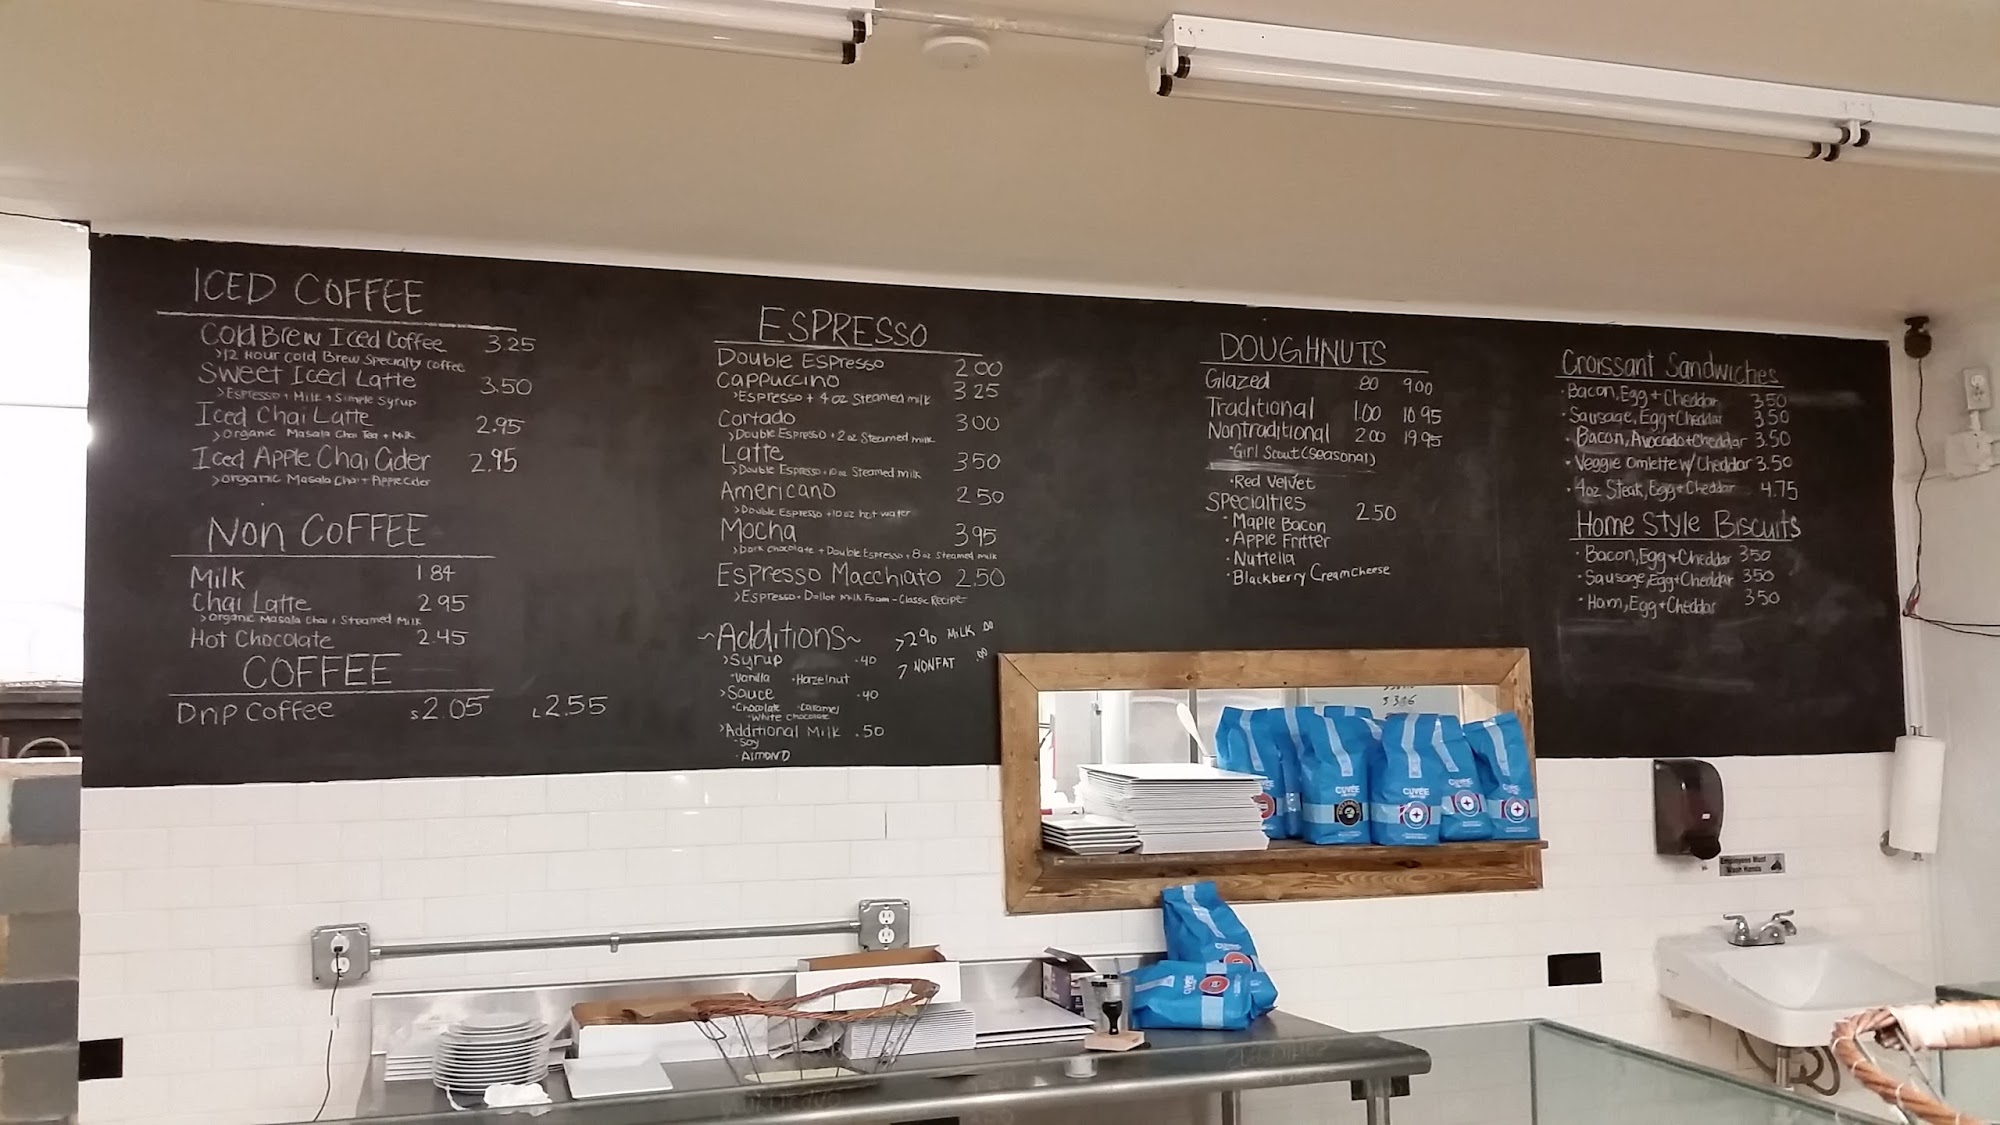 ICED COFFEE
Cold Brew Iced Coffee 3.25
>12 Hour Cold Brew Specialty coffee
Sweet Iced Latte 3.50
>Espresso + Milk + Simple Syrup
Iced Chai Latte 2.95
>Organic Masala Chai Tea + Milk
Iced Apple Chai Cider 2.95
>Organic Masala Chai + Apple Cider
NON COFFEE
Milk 1.84
Chai Latte 2.95
>Organic Masala Chai + Steamed Milk
Hot Chocolate 2.45
COFFEE
Drip Coffee S2.05 L2.55
ESPRESSO
Double Espresso 2.00
Cappuccino 3.25
>Espresso + 4 oz Steamed milk
Cortado 3.00
>Double Espresso + 2 oz Steamed milk
Latte 3.50
>Double Espresso + 10 oz Steamed milk
Americano 2.50
>Double Espresso + 10 oz hot water
Mocha 3.95
>Dark chocolate + Double Espresso + 8 oz Steamed milk
Espresso Macchiato 2.50
>Espresso + Dollop Milk Foam - Classic Recipe
~Additions~
>Syrup .40
·Vanilla ·Hazelnut
>Sauce .40
·Chocolate ·Caramel
·White Chocolate
>Additional Milk .50
·Soy
·ALMOND
>2% MILK .00
>NONFAT .00
DOUGHNUTS
Glazed .80 9.00
Traditional 1.00 10.95
Nontraditional 2.00 19.95
·Girl Scout (Seasonal)
·Red Velvet
Specialties 2.50
·Maple Bacon
·Apple Fritter
·Nuttella
·Blackberry Cream Cheese
Croissant Sandwiches
·Bacon, Egg + Cheddar 3.50
·Sausage, Egg + Cheddar 3.50
·Bacon, Avocado + Cheddar 3.50
·Veggie Omlette w/ Cheddar 3.50
·4oz Steak, Egg + Cheddar 4.75
Home Style Biscuits
·Bacon, Egg + Cheddar 3.50
·Sausage, Egg + Cheddar 3.50
·Ham, Egg + Cheddar 3.50
CUVÉE
CUVÉE
CUVÉE
CUVÉE
Employees Must
Wash Hands
CUVÉE
CUVÉE